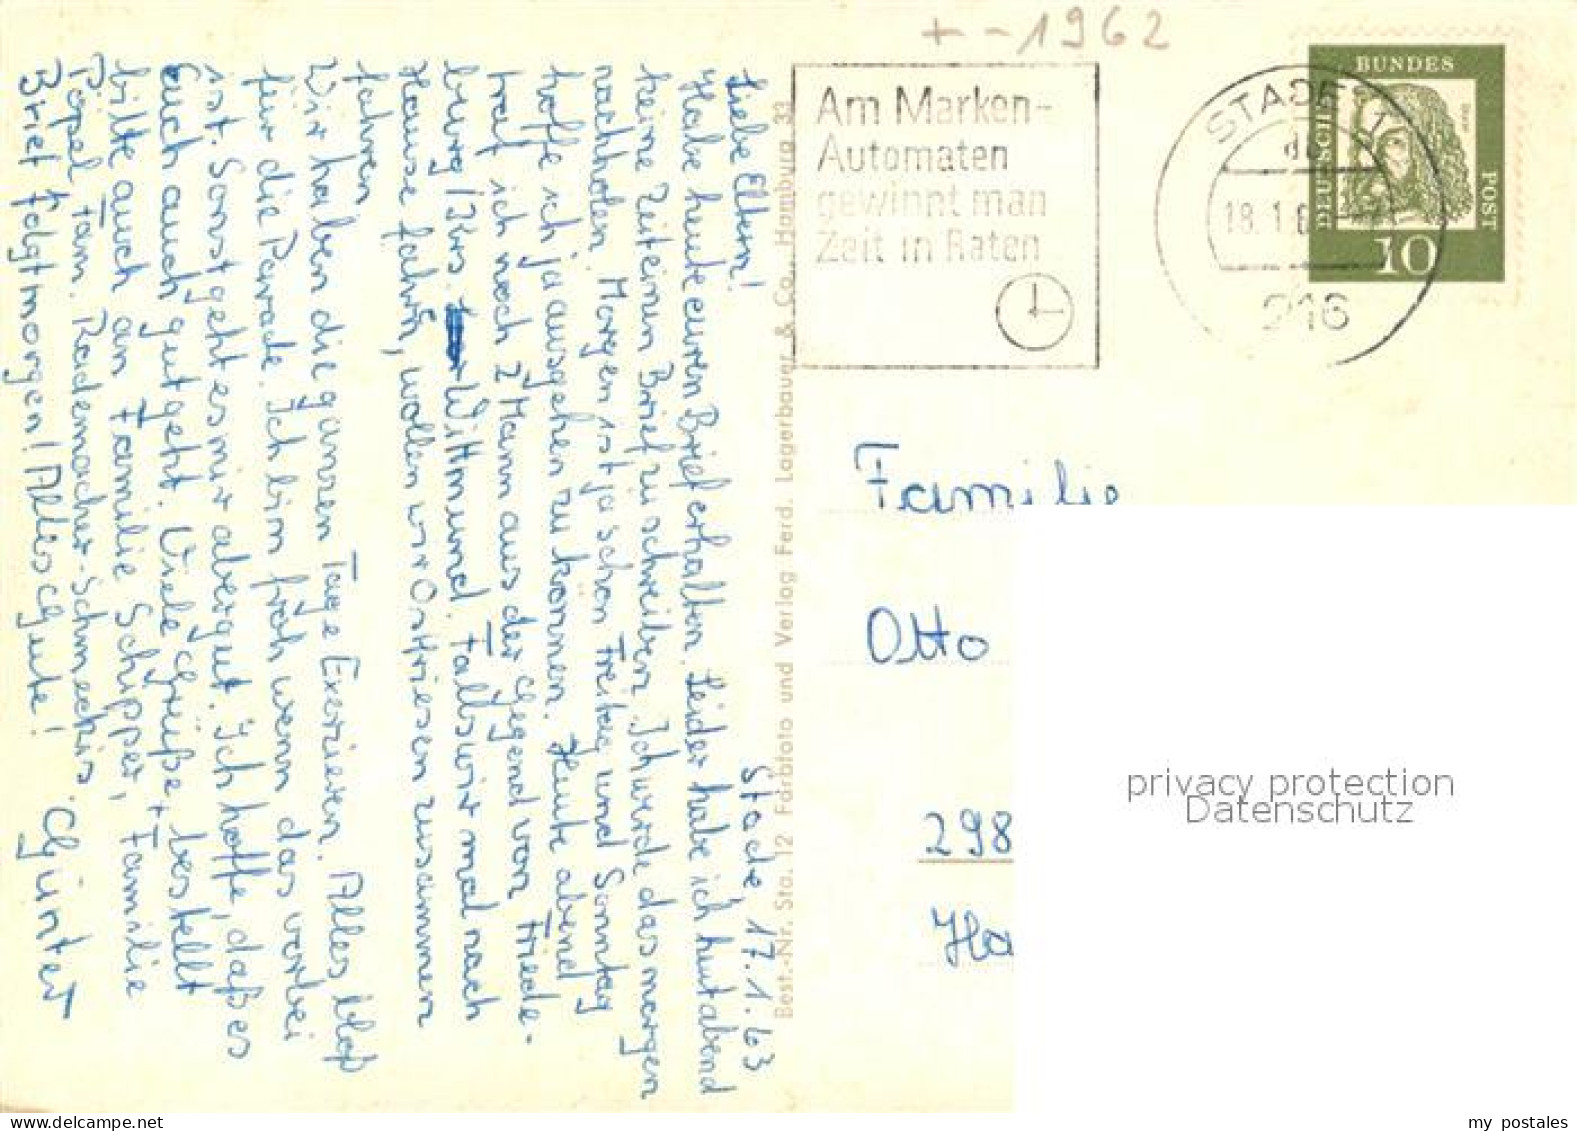 +--1962
Am Marken-
Automaten
gewinnt man
Zeit in Raten
STADE
18.1.6
216
BUNDES
DEUTSCHE
POST
10
Stade, 17.1.63
Liebe Eltern!
Habe heute euren Brief erhalten. Leider habe ich heut abend
keine Zeit einen Brief zu schreiben. Ich werde das morgen
nachholen. Morgen ist ja schon Freitag und Sonntag
hoffe ich ja ausgehen zu können. Heute abend
traf ich noch 2 Mann aus der Gegend von Friede-
burg/Krs. Wittmund. Falls wir mal nach
Hause fahren, wollen wir Ostfriesen zusammen
fahren.
Wir haben die ganzen Tage Exerzieren. Alles bloß
für die Parade. Ich bin froh wenn das vorbei
ist. Sonst geht es mir aber gut. Ich hoffe, daß es
Euch auch gut geht. Viele Grüße, bestellt
bitte auch an Familie Schipper, Familie
Pöpel, Fam. Rademacher-Schmeckis.
Brief folgt morgen! Alles Gute! Günter
Best.-Nr. Sta. 12 Farbfoto und Verlag Ferd. Lagerbauer & Co., Hamburg 33
Familie
Otto
298
Ha
privacy protection
Datenschutz
my postales
www.delcampe.net